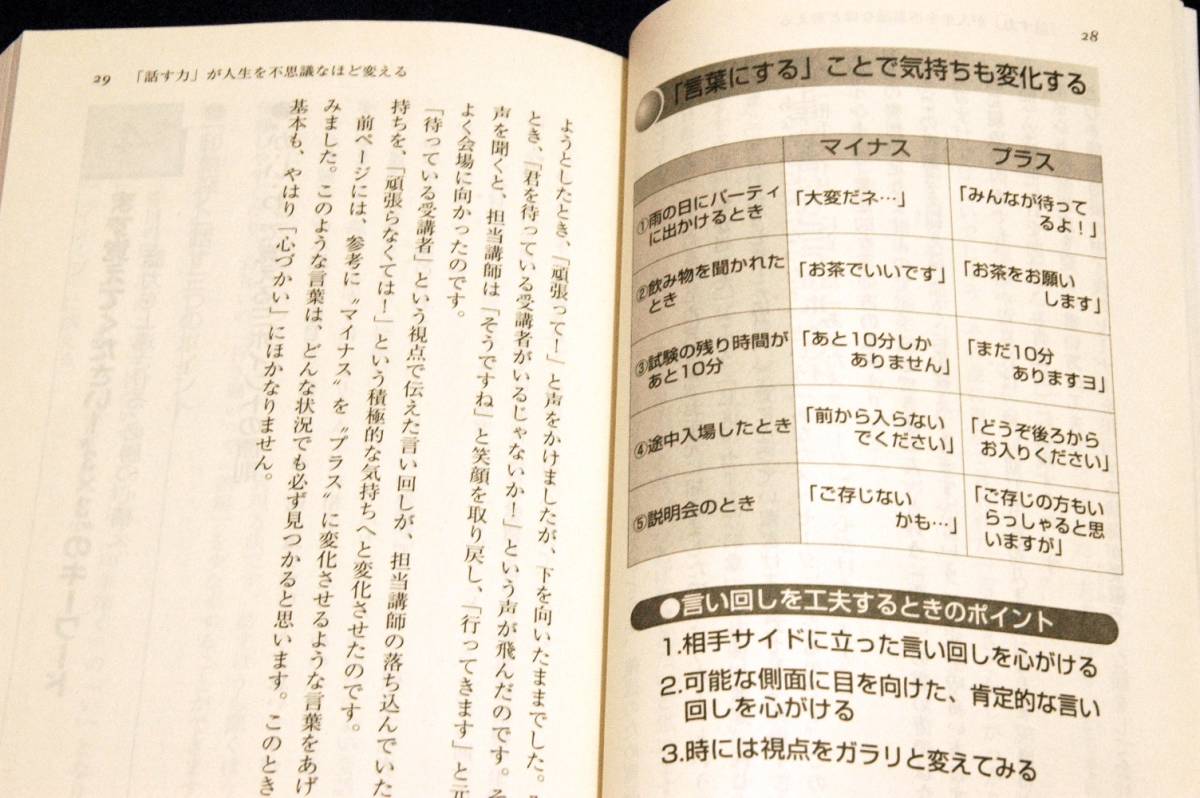 28
「言葉にする」ことで気持ちも変化する
マイナス
プラス
①雨の日にパーティ
に出かけるとき
「大変だネ…」
「みんなが待って
るよ！」
②飲み物を聞かれた
とき
「お茶でいいです」
「お茶をお願い
します」
③試験の残り時間が
あと10分
「あと10分しか
ありません」
「まだ10分
ありますヨ」
④途中入場したとき
「前から入らない
でください」
「どうぞ後ろから
お入りください」
⑤説明会のとき
「ご存じない
かも…」
「ご存じの方もい
らっしゃると思
いますが」
●言い回しを工夫するときのポイント
1.相手サイドに立った言い回しを心がける
2.可能な側面に目を向けた、肯定的な言い
回しを心がける
3.時には視点をガラリと変えてみる
29 「話す力」が人生を不思議なほど変える
ようとしたとき、「頑張って！」と声をかけましたが、下を向いたままでした。
とき、「君を待っている受講者がいるじゃないか！」という声が飛んだのです。そ
声を聞くと、担当講師は「そうですね」と笑顔を取り戻し、「行ってきます」と元
よく会場に向かったのです。
「待っている受講者」という視点で伝えた言い回しが、担当講師の落ち込んでいた
持ちを、「頑張らなくては！」という積極的な気持ちへと変化させたのです。
前ページには、参考に〝マイナス〟を〝プラス〟に変化させるような言葉をあげ
みました。このような言葉は、どんな状況でも必ず見つかると思います。このとき
基本も、やはり「心づかい」にほかなりません。